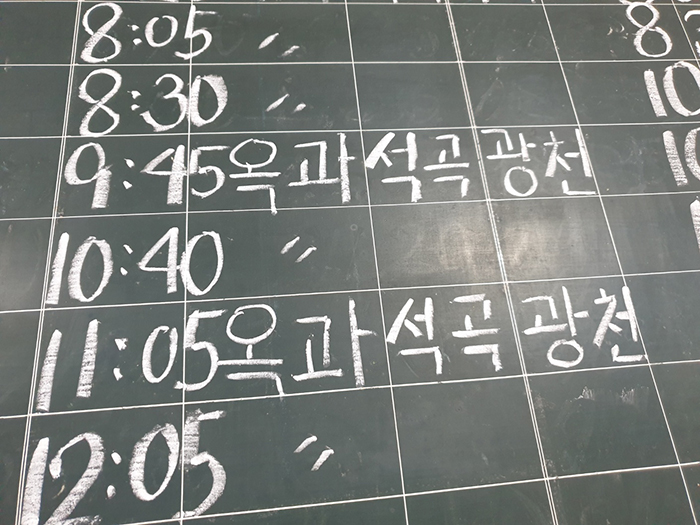 8:05 〃
8:30 〃
9:45 옥과 석곡 광천
10:40 〃
11:05 옥과 석곡 광천
12:05 〃